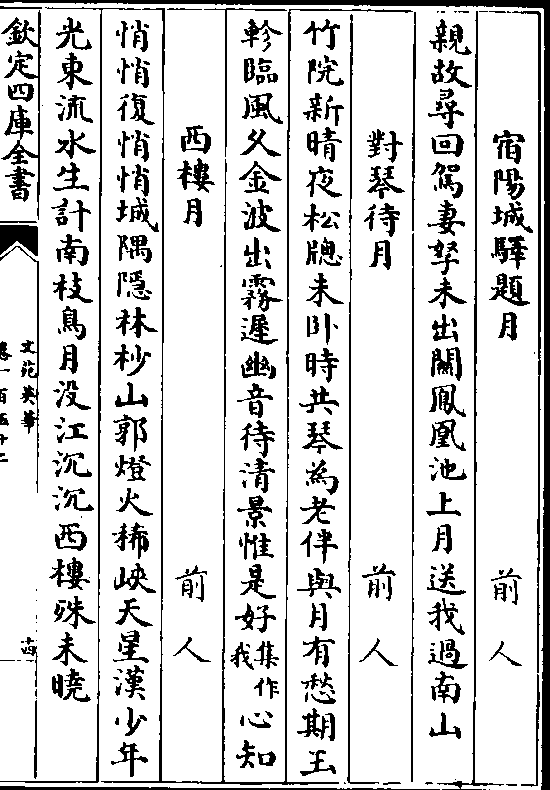 宿陽城驛題月　前人
親故尋回駕妻孥未出關鳳凰池上月送我過南山
對琴待月　前人
竹院新晴夜松牕未卧時共琴為老伴與月有愁期玉
軫臨風乆金波出霧遲幽音待清景惟是好集作我心知
西樓月　前人
悄悄復悄悄城隅隱林杪山郭燈火稀峽天星漢少年
光東流水生計南枝鳥月没江沉沉西樓殊未曉
欽定四庫全書
文苑英華
卷一百五十二
十四